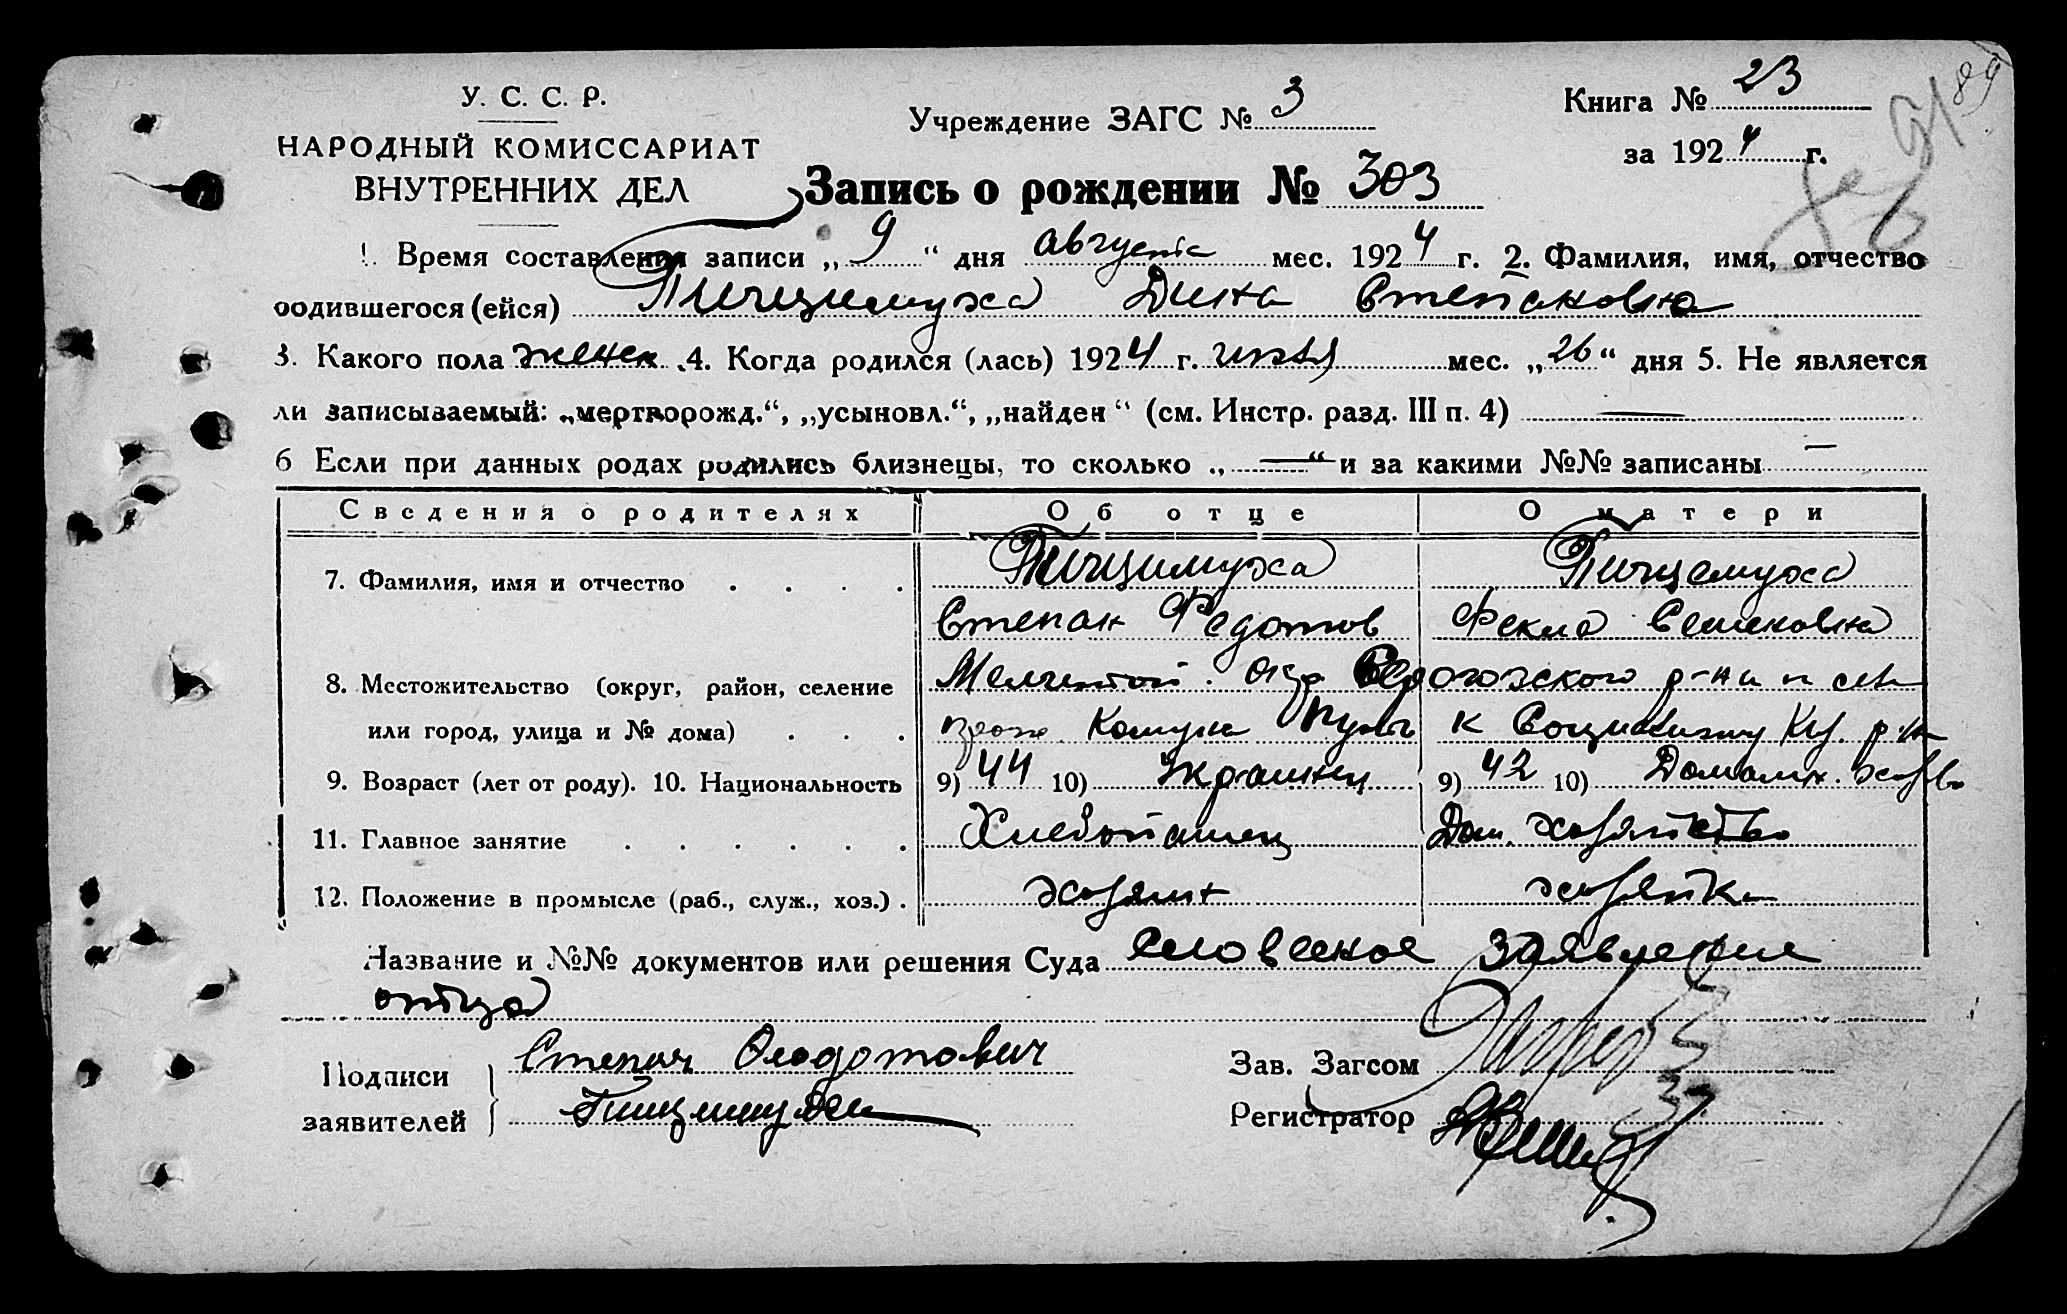 У. С. С. Р.
НАРОДНЫЙ КОМИССАРИАТ
ВНУТРЕННИХ ДЕЛ
Учреждение ЗАГС № 3
Книга № 23
за 1924 г.
89
Запись о рождении № 303
1. Время составления записи „9“ дня августа мес. 1924 г. 2. Фамилия, имя, отчество
родившегося (ейся) Пичшимуха Дина Степановна
3. Какого пола женск. 4. Когда родился (лась) 1924 г. июля мес. „26“ дня 5. Не является
ли записываемый: „мертворожд.“, „усыновл.“, „найден“ (см. Инстр. разд. III п. 4) —
6 Если при данных родах родились близнецы, то сколько „—“ и за какими №№ записаны —
Сведения о родителях Об отце О матери
7. Фамилия, имя и отчество
Степан Федотов Фекла Семеновна
8. Местожительство (округ, район, селение
или город, улица и № дома) Комуна Путь к Социализму
9. Возраст (лет от роду). 10. Национальность 9) 44 10) Украинец 9) 42 10) Домашн. хозяйство
11. Главное занятие Хлебопашец Дом. хозяйство
12. Положение в промысле (раб., служ., хоз.) хозяин хозяйка
Название и №№ документов или решения Суда словесное заявление
отца
Подписи заявителей Степан
Зав. Загсом
Регистратор